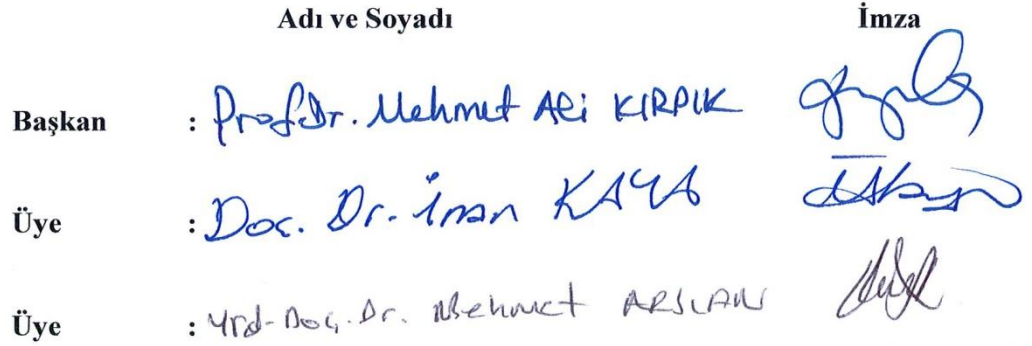 Adı ve Soyadı İmza
Başkan : Prof.Dr. Mehmet Ali KIRPIK
Üye : Doç. Dr. İnan KAYA
Üye : Yrd. Doç. Dr. Mehmet ARSLAN